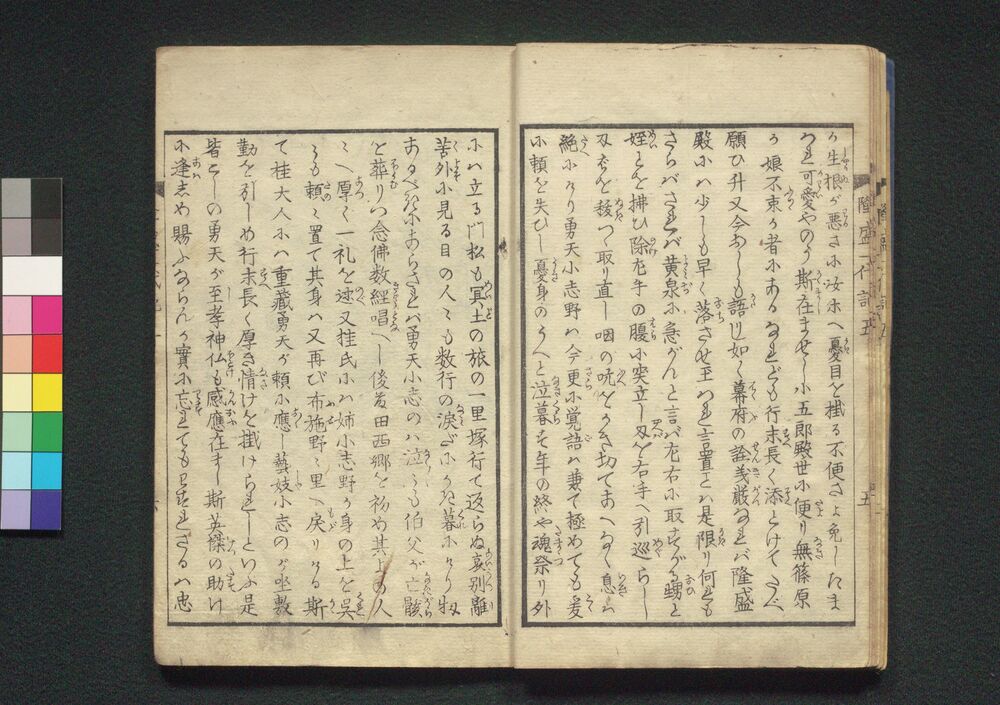 が生根が悪さに汝等へ憂目を掛る不便さよ免したま
われ可愛やのう斯在ませし小五郎殿世に便り無篠原
が娘不束が者にあるなれども行末長く添とげてたべ
願ひ升又今あしも語りし如く幕府の詮義厳なれバ隆盛
殿にハ少しも早く落させ至われ言置とハ是限り何れも
さらバされバ黄泉に急がんと言バ左右に取すがる甥と
姪とを拂ひ除左手の腹に突立し刄を右手へ引巡らし
刄物を抜つゝ取り直し咽の吭をかき切てあへなく息ハ
絶にけり勇天小志野ハ今更に覚語ハ兼て極めても爰
に頼を失ひし憂身のうへと泣暮す年の終や魂祭り外
にハ立る門松も冥土の旅の一里塚行て返らぬ哀別離
苦外に見る目の人々も数行の涙ぞにかき暮にけり
あるべきにあらざれバ勇天小志のハ泣々も伯父が亡骸
を葬りつ念佛数経唱へし後藤田西郷を初め其上の人
々へ厚く一礼を述又桂氏にハ姉小志野が身の上を呉
々も頼ミ置て其身ハ又再び布施野の里へ戻りける斯
て桂大人にハ重藏勇天が頼に應し藝妓小志のが座敷
勤を引しめ行末長く厚き情けを掛けられしといふ是
皆としの勇天が至孝神仏も感應在まし斯英傑の助け
に逢しめ賜ふならんが實に忘れても忘れざるハ忠
隆盛一代記五
五